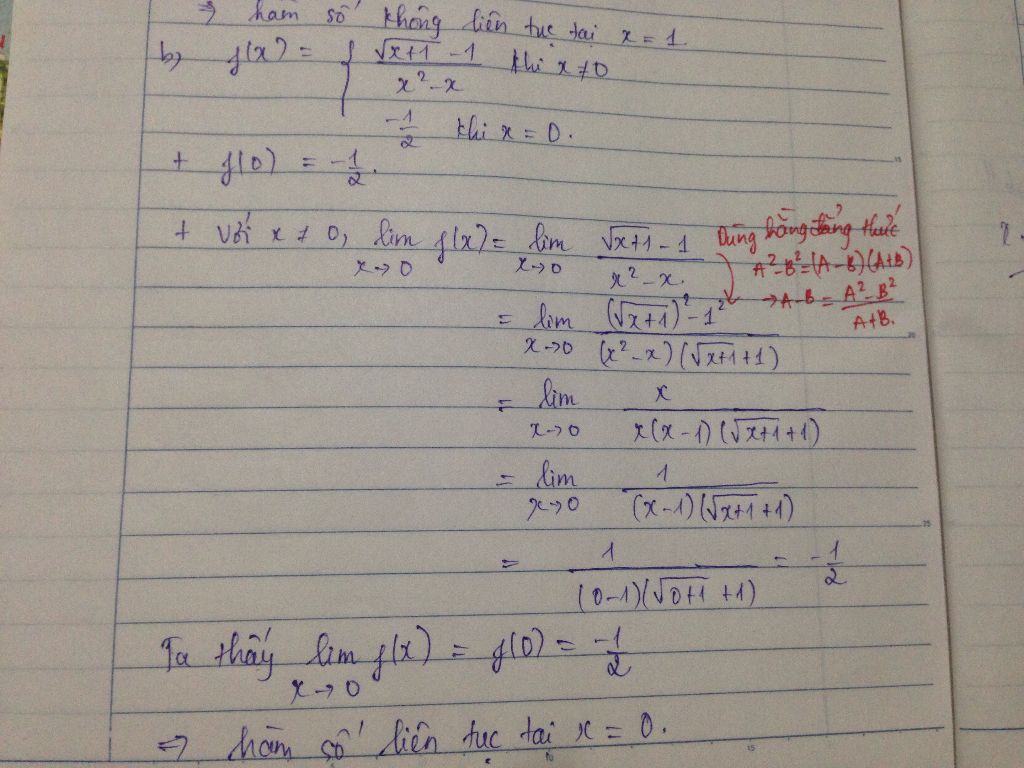 ⇒ hàm số không liên tục tại x = 1
b, f(x) = { (√(x+1) - 1)/(x² - x) khi x ≠ 0
-1/2 khi x = 0.
+ f(0) = -1/2.
+ Với x ≠ 0, lim x→0 f(x) = lim x→0 (√(x+1) - 1)/(x² - x).
Dùng hằng đẳng thức
A²-B² = (A-B)(A+B)
→ A-B = (A²-B²)/(A+B).
= lim x→0 ((√(x+1))² - 1²)/((x² - x)(√(x+1) + 1))
= lim x→0 x/(x(x-1)(√(x+1) + 1))
= lim x→0 1/((x-1)(√(x+1) + 1))
= 1/((0-1)(√(0+1) + 1)) = -1/2
Ta thấy lim x→0 f(x) = f(0) = -1/2
⇒ hàm số liên tục tại x = 0.